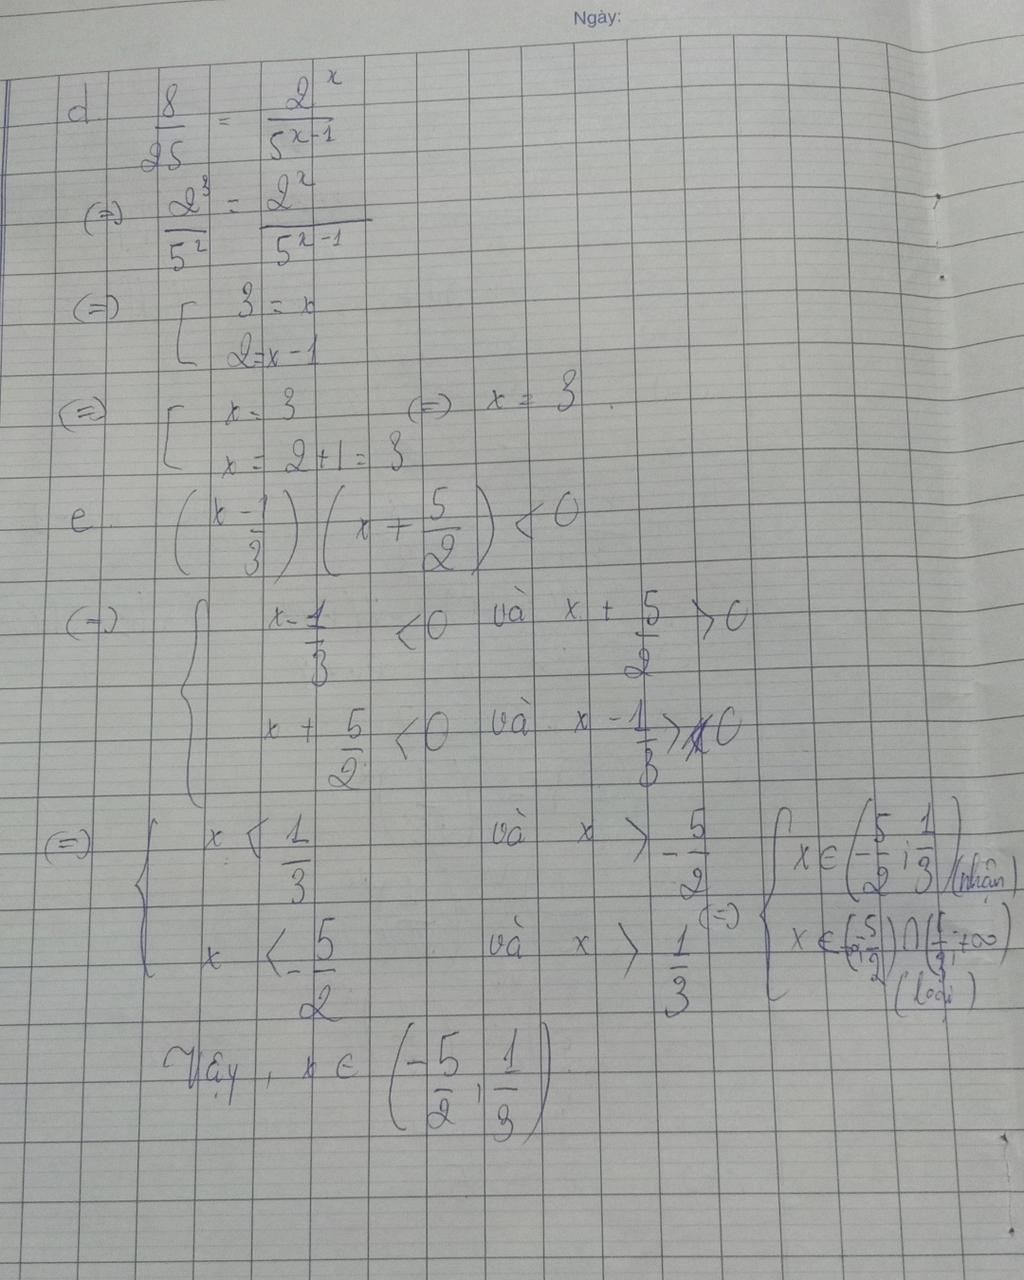 Ngày:
d. 8/25 = 2^x/5^(x-1)
(=) 2^3/5^2 = 2^x/5^(x-1)
(=) [ 3 = x
2 = x - 1
(=) [ x = 3 (=) x = 3.
x = 2 + 1 = 3
e. (x - 1/3) (x + 5/2) < 0
(=) { x - 1/3 < 0 và x + 5/2 > 0
x + 5/2 < 0 và x - 1/3 > 0
(=) { x < 1/3 và x > -5/2 (=) { x ∈ (-5/2 ; 1/3) (nhận)
x < -5/2 và x > 1/3 x ∈ (-∞; -5/2) ∩ (1/3; +∞)
(loại)
Vậy, x ∈ (-5/2 ; 1/3)